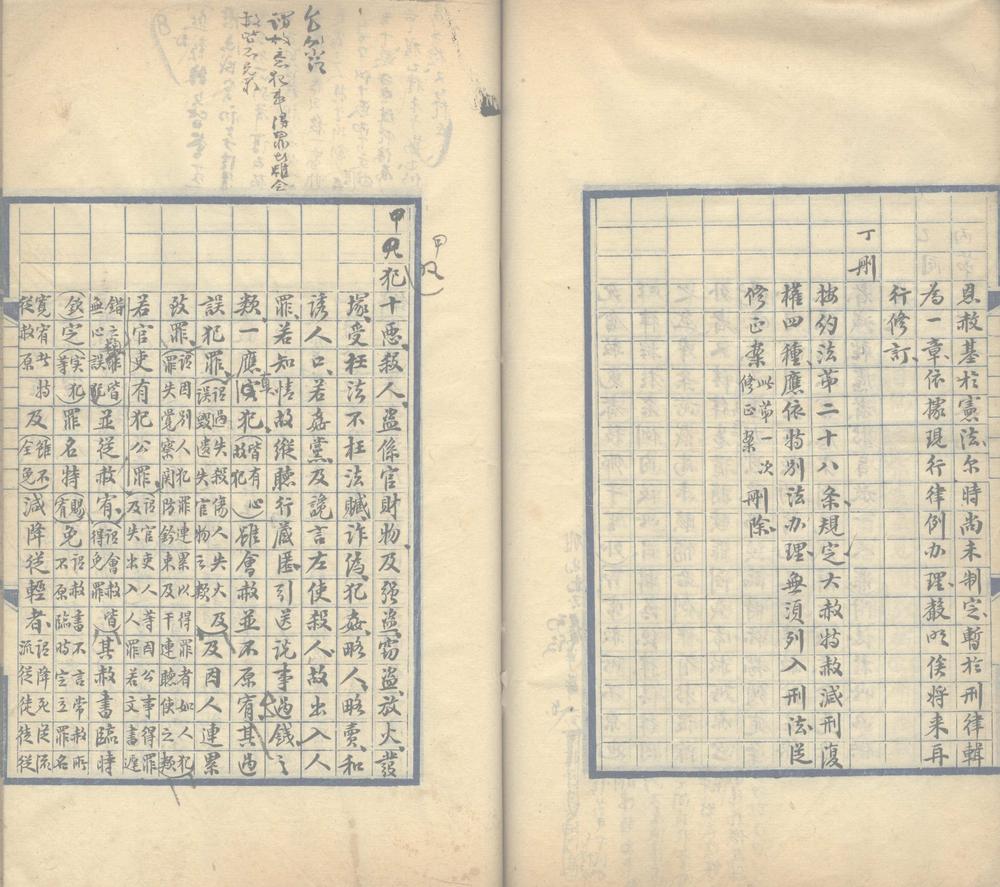 恩赦基於憲法尔時尚未制定暫於刑律輯
為一章依據現行律例办理聲明俟将来再
行修訂
丁刪
按約法苐二十八条規定大赦特赦減刑復
權四種應依特別法办理無須列入刑法從
修正案此苐一次修正案刪除
謂故意犯事得罪者雖会
赦皆不免罪
甲
甲凡犯十惡殺人盗係官財物及强盗窃盗放火發
塚受枉法不枉法贓诈偽犯姦略人略賣和
誘人口若姦黨及讒言左使殺人故出入人
罪若知情故縱聽行藏匿引送说事過錢之
類一應真犯皆有心故犯雖會赦並不原宥其過
誤犯罪謂過失殺傷人失火及誤毁遺失官物之類及因人連累
致罪謂因別人犯罪連累以得罪者如人犯罪失覺察関防鈐束及干連聽使之類
若官吏有犯公罪謂官吏人等因公事得罪及失出入人罪若文書遲
錯之類皆無心誤犯並從赦宥謂會赦皆得免罪其赦書臨時
欽定實犯等罪名特賜宥免谓赦書不言常赦所不原臨時定立罪名
寬宥者特從赦原及雖不全免減降從輕者谓降死從流流從徒徒從